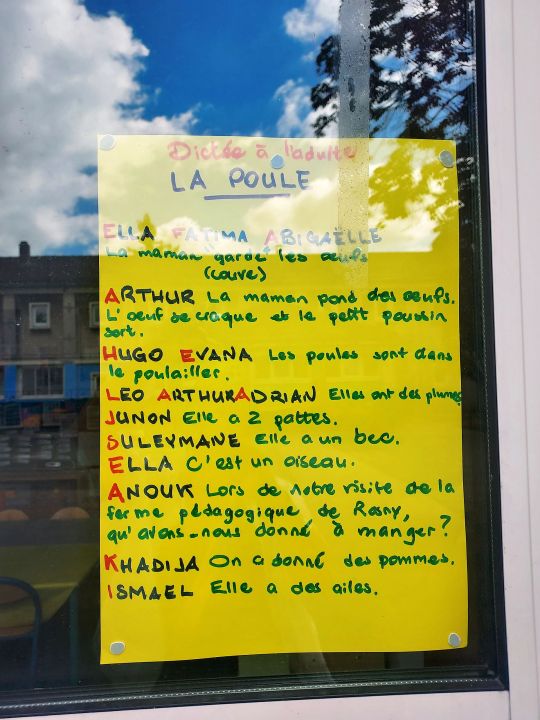 Dictée à l'adulte
LA POULE
ELLA FATIMA ABIGAËLLE
La maman garde les oeufs
(couve)
ARTHUR La maman pond des oeufs.
L'oeuf se craque et le petit poussin
sort.
HUGO EVANA Les poules sont dans
le poulailler.
LEO ARTHUR ADRIAN Elles ont des plumes
JUNON Elle a 2 pattes.
SULEYMANE Elle a un bec.
ELLA C'est un oiseau.
ANOUK Lors de notre visite de la
ferme pédagogique de Rosny,
qu'avons-nous donné à manger?
KHADIJA On a donné des pommes.
ISMAEL Elle a des ailes.